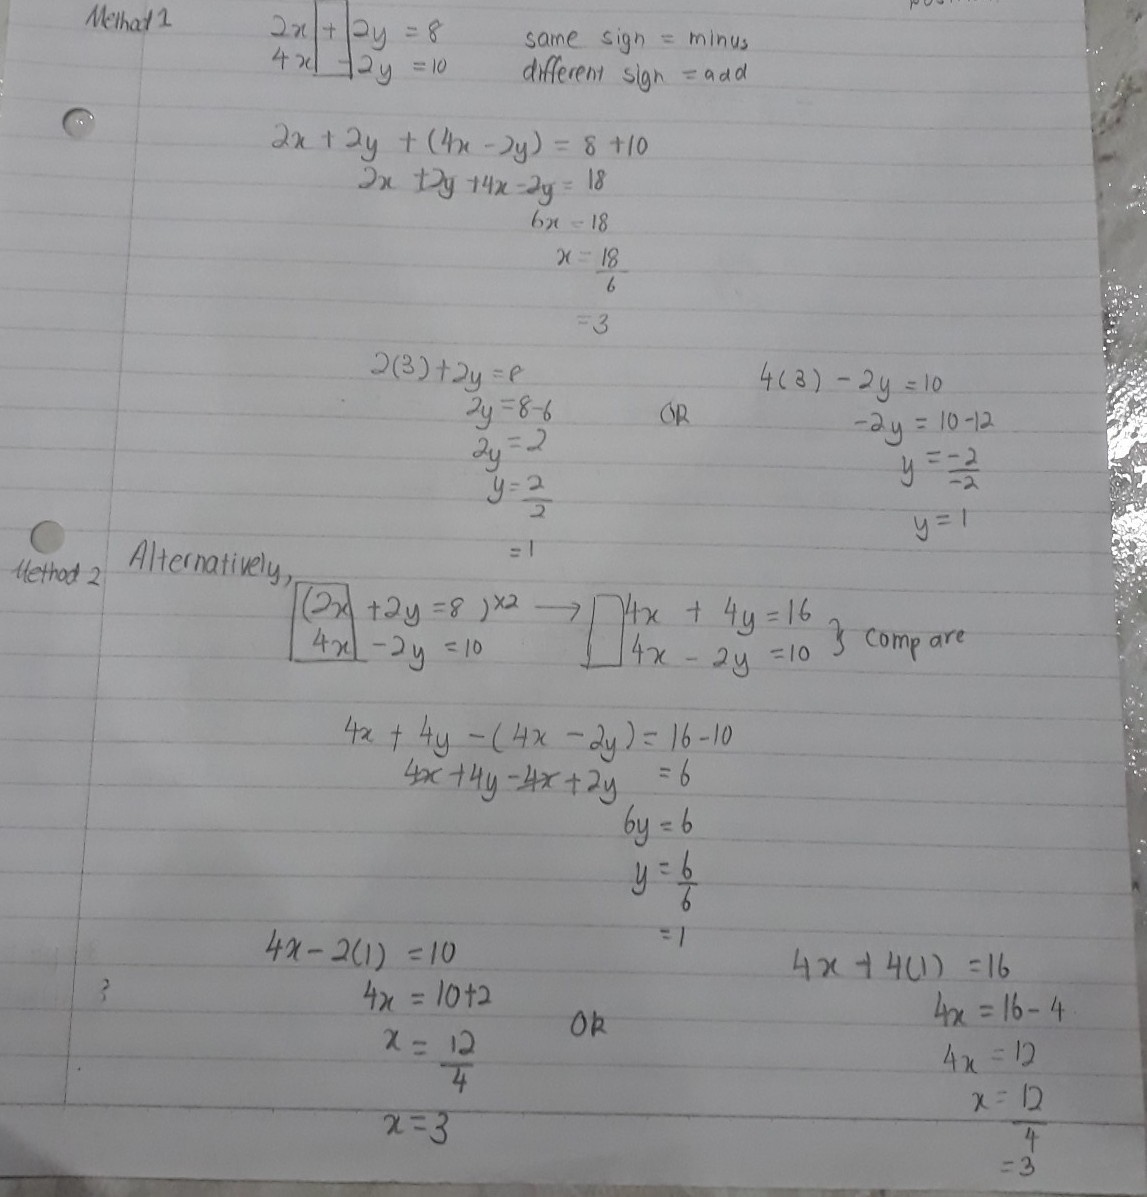 Method 1
2x + 2y = 8 same sign = minus
4x - 2y = 10 different sign = add
2x + 2y + (4x - 2y) = 8 + 10
2x + 2y + 4x - 2y = 18
6x = 18
x = 18/6
= 3
2(3) + 2y = 8
2y = 8 - 6
2y = 2
y = 2/2
= 1
OR
4(3) - 2y = 10
-2y = 10 - 12
y = -2/-2
y = 1
Method 2
Alternatively,
(2x + 2y = 8) x2 → 4x + 4y = 16
4x - 2y = 10 4x - 2y = 10 } compare
4x + 4y - (4x - 2y) = 16 - 10
4x + 4y - 4x + 2y = 6
6y = 6
y = 6/6
= 1
4x - 2(1) = 10
4x = 10 + 2
x = 12/4
x = 3
OR
4x + 4(1) = 16
4x = 16 - 4
4x = 12
x = 12/4
= 3